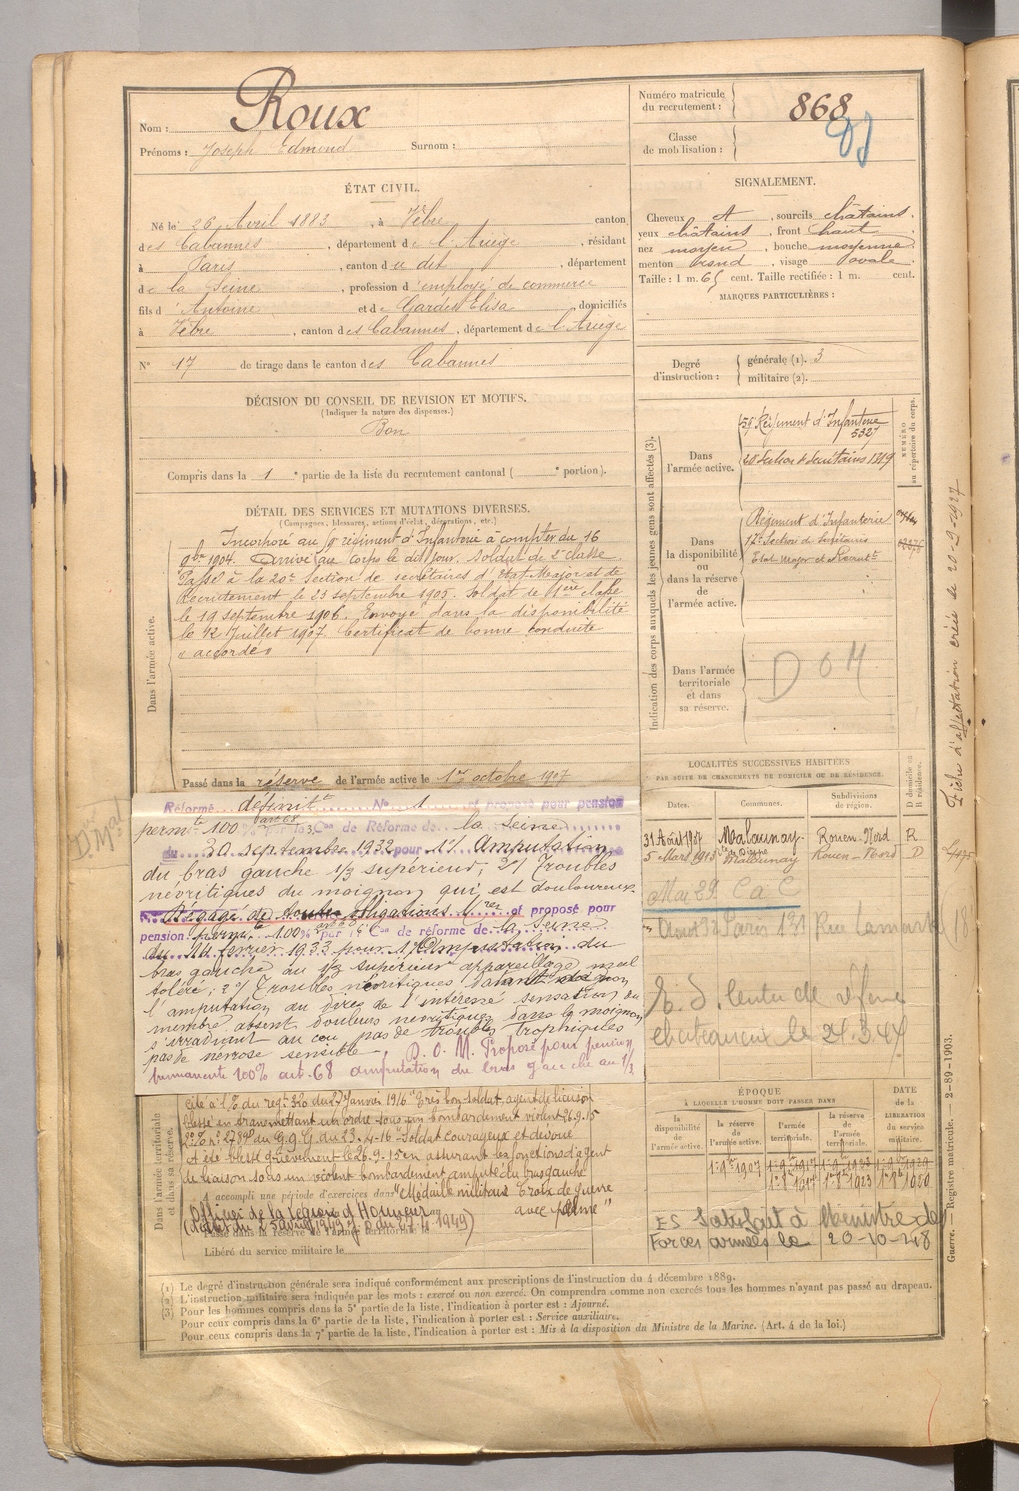 Nom : Roux
Prénoms : Joseph Edmond Surnom :
Numéro matricule du recrutement : 868
Classe de mobilisation :
ÉTAT CIVIL.
Né le 26 Avril 1883, à Vèbre canton
des Cabannes, département de l'Ariège, résidant
à Paris, canton du dit, département
de la Seine, profession d'employé de commerce
fils d'Antoine et de Gardes Elisa, domiciliés
à Vèbre, canton des Cabannes, département de l'Ariège
N° 17 de tirage dans le canton des Cabannes
SIGNALEMENT.
Cheveux et, sourcils châtains.
yeux châtains, front haut,
nez moyen, bouche moyenne,
menton rond, visage ovale.
Taille : 1 m. 65 cent. Taille rectifiée : 1 m. cent.
MARQUES PARTICULIÈRES :
Degré d'instruction : générale (1). 3
militaire (2).
DÉCISION DU CONSEIL DE REVISION ET MOTIFS.
(Indiquer la nature des dispenses.)
Bon
Compris dans la 1e partie de la liste du recrutement cantonal ( e portion).
DÉTAIL DES SERVICES ET MUTATIONS DIVERSES.
(Campagnes, blessures, actions d'éclat, décorations, etc.)
Dans l'armée active.
Incorporé au régiment d'Infanterie à compter du 16
9bre 1904. Arrivé au corps le dit jour. Soldat de 2e classe
Passé à la 20e Section de secrétaires d'Etat-Major et de
Recrutement le 23 septembre 1905. Soldat de 1ère classe
le 19 septembre 1906. Envoyé dans la disponibilité
le 12 Juillet 1907. Certificat de bonne conduite
« accordé »
Passé dans la réserve de l'armée active le 1er octobre 1907
Réformé définitt N° 1 et proposé pour pension
permte 100 % art 68 par la 3 Con de Réforme de la Seine
du 30 septembre 1932 pour 1°/ Amputation
du bras gauche 1/3 supérieur; 2°/ Troubles
névritiques du moignon qui est douloureux.
Dégagé de toutes obligations Mres et proposé pour
pension permte 100 % par Con de réforme de la Seine
du 14 février 1933 pour 1°/ Amputation du
bras gauche au 1/3 supérieur appareillage mal
toléré; 2°/ Troubles névritiques datant de
l'amputation au dires de l'intéressé sensation du
membre absent douleurs névritiques dans le moignon
s'irradiant au cou pas de troubles trophiques
pas de nevrose sensible - D. O. M. Proposé pour pension
permanente 100% art. 68 amputation du bras gauche au 1/3
Indication des corps auxquels les jeunes gens sont affectés (3).
NUMÉRO au répertoire du corps.
Dans l'armée active.
59e Régiment d'Infanterie 5327
20e Section de Secrétaires 1319
Dans la disponibilité ou dans la réserve de l'armée active.
Régiment d'Infanterie
Section de Secrétaires
Etat Major et Recrutt
Dans l'armée territoriale et dans sa réserve.
D O M
Fiche d'affectation créée le 20-9-1927
LOCALITÉS SUCCESSIVES HABITÉES
PAR SUITE DE CHANGEMENTS DE DOMICILE OU DE RÉSIDENCE.
Dates. Communes. Subdivisions de région. D domicile ou R résidence.
31 Août 1907 Malaunay Rouen-Nord R
5 Mars 1913 Malaunay Rouen-Nord D
Mai 29 C a C
Août 32 Paris 131 Rue Lamarck
Dans l'armée territoriale et dans sa réserve.
Cité à l'O. du regt 320 du 27 janvier 1916 "Très bon soldat, agent de liaison
blessé en transmettant un ordre sous un bombardement violent 26.9.15
O. N° 2789D du G.Q.G. du 23-4-16 "Soldat courageux et dévoué
A été blessé grièvement le 26.9.15 en assurant les fonctions d'agent
de liaison sous un violent bombardement amputé du bras gauche
A accompli une période d'exercices dans "Médaille militaire Croix de guerre
avec palme"
Officier de la Légion d'Honneur
Passé dans la réserve de l'armée territoriale le
Libéré du service militaire le
ÉPOQUE
À LAQUELLE L'HOMME DOIT PASSER DANS
la disponibilité de l'armée active. la réserve de l'armée active. l'armée territoriale. la réserve de l'armée territoriale.
DATE de la LIBÉRATION du service militaire.
1er 8bre 1907
ES Satisfait à Ministre des
Forces armées le 20-10-48
Guerre. — Registre matricule. — 2-89-1903.
(1) Le degré d'instruction générale sera indiqué conformément aux prescriptions de l'instruction du 4 décembre 1889.
(2) L'instruction militaire sera indiquée par les mots : exercé ou non exercé. On comprendra comme non exercés tous les hommes n'ayant pas passé au drapeau.
(3) Pour les hommes compris dans la 5e partie de la liste, l'indication à porter est : Ajourné.
Pour ceux compris dans la 6e partie de la liste, l'indication à porter est : Service auxiliaire.
Pour ceux compris dans la 7e partie de la liste, l'indication à porter est : Mis à la disposition du Ministre de la Marine. (Art. 4 de la loi.)